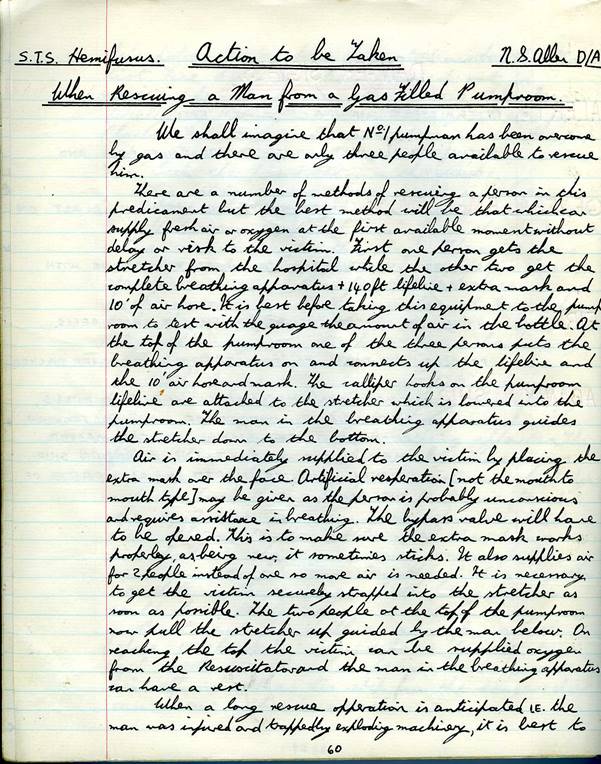 S.T.S. Hemifusus. Action to be Taken N.S. Allen D/A
When Rescuing a Man from a Gas Filled Pumproom.
We shall imagine that No1 pumpman has been overcome
by gas and there are only three people available to rescue
him.
There are a number of methods of rescuing a person in this
predicament but the best method will be that which can
supply fresh air or oxygen at the first available moment without
delay or risk to the victim. First one person gets the
stretcher from the hospital while the other two get the
complete breathing apparatus + 140ft lifeline + extra mask and
10' of air hose. It is best before taking this equipment to the pump
room to test with the guage the amount of air in the bottle. At
the top of the pumproom one of the three persons puts the
breathing apparatus on and connects up the lifeline and
the 10' air hose and mask. The calliper hooks on the pumproom
lifeline are attached to the stretcher which is lowered into the
pumproom. The man in the breathing apparatus guides
the stretcher down to the bottom.
Air is immediately supplied to the victim by placing the
extra mask over the face. Artificial resperation [not the mouth to
mouth type] may be given as the person is probably unconscious
and requires assistance in breathing. The bypass valve will have
to be opened. This is to make sure the extra mask works
properley, as being new, it sometimes sticks. It also supplies air
for 2 people instead of one so more air is needed. It is necessary
to get the victim securely strapped into the stretcher as
soon as possible. The two people at the top of the pumproom
now pull the stretcher up guided by the man below. On
reaching the top the victim can be supplied oxygen
from the Resuscitator and the man in the breathing apparatus
can have a rest.
When a long rescue operation is anticipated I.E. the
man was injured and trapped by exploding machinery, it is best to
60